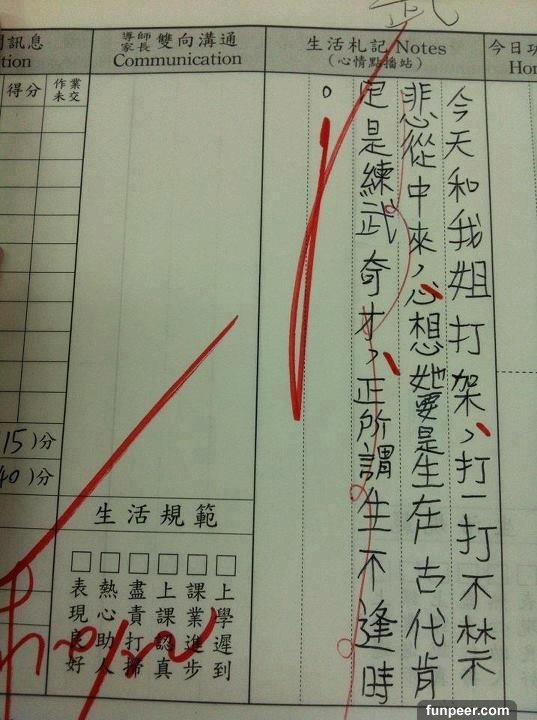 武
今日
Hor
生活札記 Notes
(心情點播站)
今天和我姐打架，打一打不禁
悲從中來，心想她要是生在古代肯
定是練武奇才，正所謂生不逢時
。
導師 家長 雙向溝通
Communication
訊息
tion
作業未交
得分
15)分
40)分
生活規範
□上學遲到
□課業進步
□上課認真
□盡責打掃
□熱心助人
□表現良好
funpeer.com